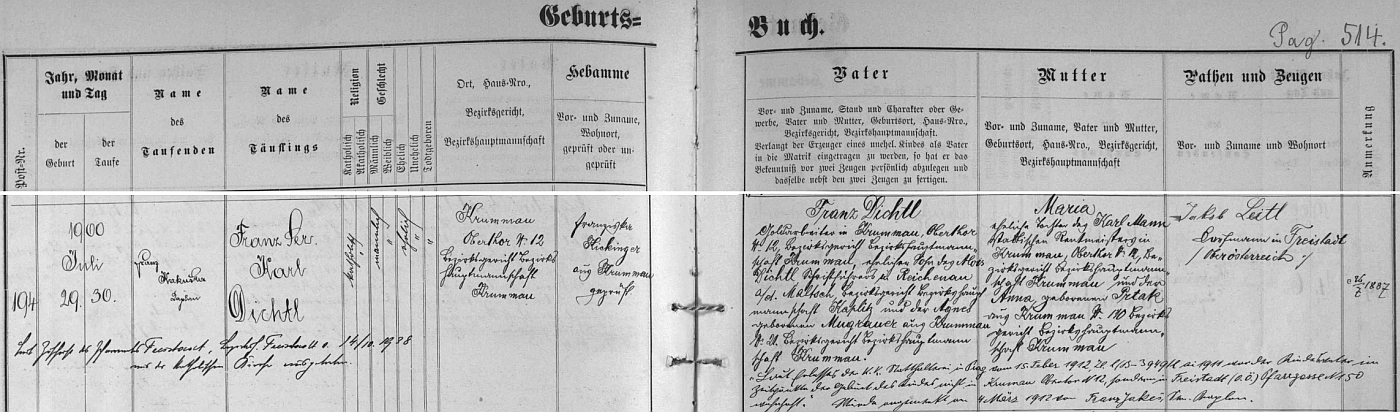 Geburts=
Buch.
Pag. 514.
Post-Nr.
Jahr, Monat
und Tag
der
Geburt
der
Taufe
Name
des
Taufenden
Name
des
Täuflings
Religion
Katholisch
Akatholisch
Geschlecht
Männlich
Weiblich
Ehelich
Unehelich
Todtgeboren
Ort, Haus-Nro.,
Bezirksgericht,
Bezirkshauptmannschaft
Hebamme
Vor- und Zuname,
Wohnort,
geprüft oder un-
geprüft
Vater
Vor- und Zuname, Stand und Charakter oder Ge-
werbe, Vater und Mutter, Geburtsort, Haus-Nro.,
Bezirksgericht, Bezirkshauptmannschaft.
Verlangt der Erzeuger eines unehel. Kindes als Vater
in die Matrik eingetragen zu werden, so hat er das
Bekenntniß vor zwei Zeugen persönlich abzulegen und
dasselbe nebst den zwei Zeugen zu fertigen.
Mutter
Vor- und Zuname, Vater und Mutter,
Geburtsort, Haus-Nro., Bezirksgericht,
Bezirkshauptmannschaft
Pathen und Zeugen
Vor- und Zuname und Wohnort
Anmerkung
194
1900
Juli
29. 30.
Franz
Kaplan
Franz Ser.
Karl
Dichtl
katholisch
männlich
ehelich
Krummau
Oberthor N. 12
Bezirksgericht Bezirks
hauptmannschaft
Krummau
Franziska
aus Krummau
geprüft
Franz Dichtl
Goldarbeiter in Krummau, Oberthor
N. 12, Bezirksgericht Bezirkshauptmann-
schaft Krummau, ehelicher Sohn des
Dichtl in Reichenau
a/d. Maltsch, Bezirksgericht Bezirkshaupt
mannschaft Kaplitz und der Agnes
geborenen Mugrauer aus Krummau
Bezirksgericht Bezirkshauptmann
schaft Krummau.
Maria
eheliche Tochter des Karl Mann
Rentmeister in
Krummau, Oberthor N. 12, Be-
zirksgericht Bezirkshauptmann
schaft Krummau und der
Anna geborenen Ptak
aus Krummau N. 170 Bezirks
gericht Bezirkshauptmann-
schaft Krummau
Jakob Leitl
in Freistadt
(Oberösterreich)
1887
Laut Zuschrift des Pfarramtes Freistadt, 14/10. 1938
aus der katholischen Kirche ausgetreten.
Laut Erlasses der k.k. Statthalterei in Prag vom 15 Feber 1912, 1911 war der Kindesvater im
Zeitpunkte der Geburt des Kindes nicht in Krumau Oberthor N 12, sondern in Freistadt (O.Ö) Pfarrgasse N 150
wohnhaft. Wurde angemerkt am 4 März 1912 von Franz